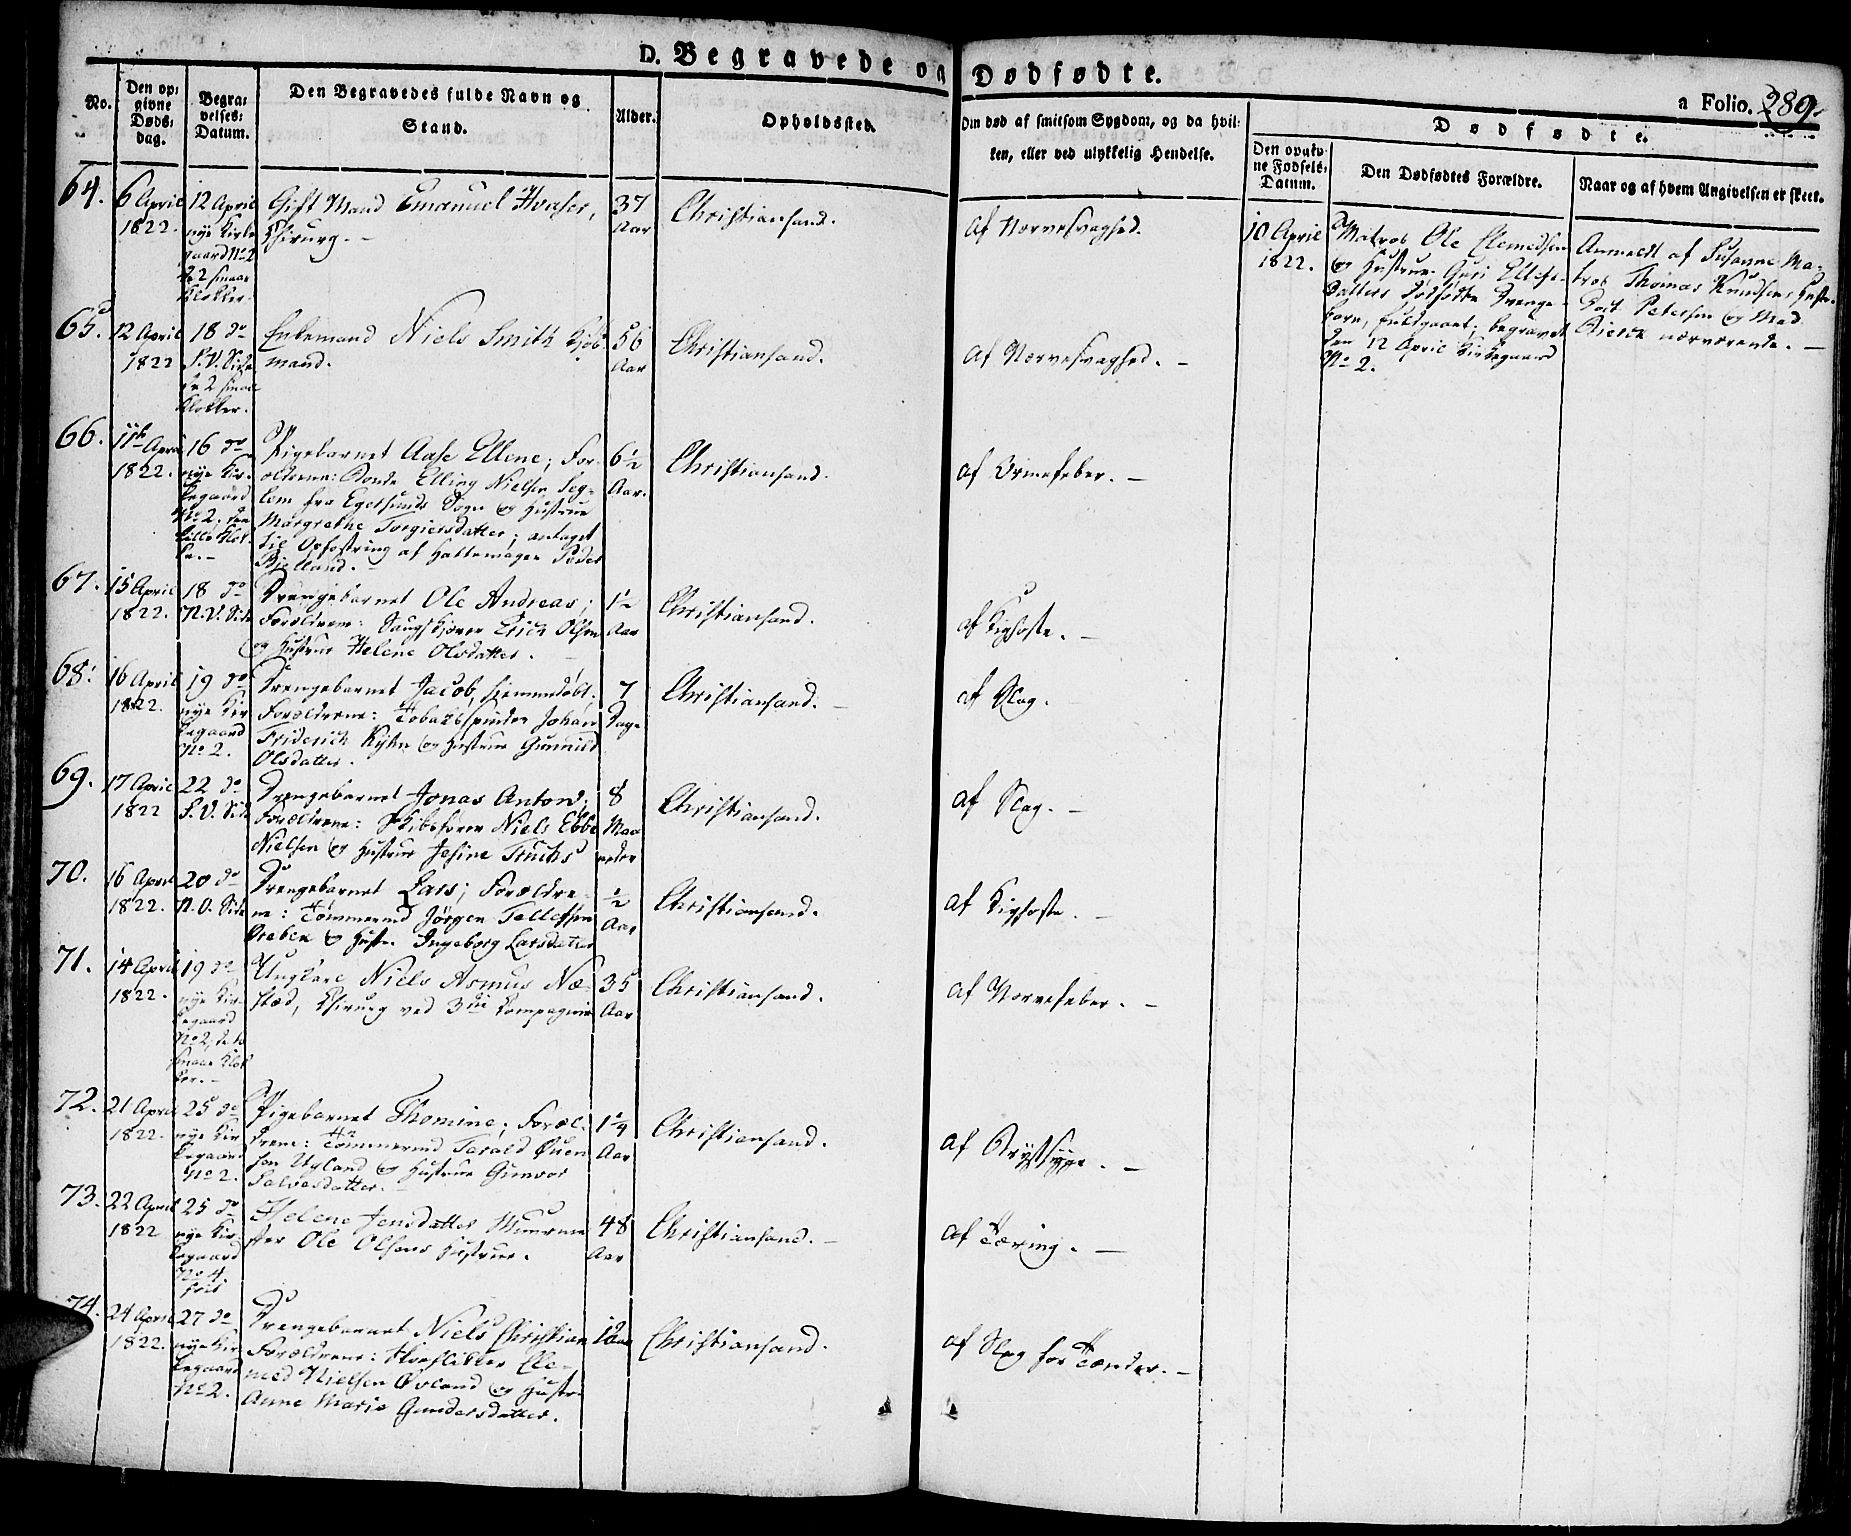 D. Begravede og Dødfødte.
a Folio. 289.
No.
Den op-
givne
Døds-
dag.
Begra-
velses-
Datum.
Den Begravedes fulde Navn og
Stand.
Alder.
Opholdssted.
Om død af smitsom Sygdom, og da hvil-
ken, eller ved ulykkelig Hendelse.
Dødfødte.
Den opgiv-
ne Fødsels-
Datum.
Den Dødfødtes Forældre.
Naar og af hvem Angivelsen er skeet.
64.
6 April
1822.
12 April
nye Kirke
gaard No 2
de 2 smaae
Klokker.
Gift Mand Emanuel Hvaser,
Chirurg. –
37
Aar
Christiansand.
Af Nervesvaghed.
10 April
1822.
Matros Ole Clemedsen
og Hustrue Guri Ellefs-
Datters dødfødte Drenge-
barn, fuldgaaet; begravet
den 12 April Kirkegaard
No 2.
Anmeldt af Susanne Ma-
tros Thomas Knudsens Hustr.
Petersen og Mad.
nærværende. –
65.
12 April
1822
18 do
S.V. Side
de 2 smaae
Klokker.
Enkemand Niels Smith Kjøb-
mand.
56
Aar
Christiansand.
Af Nervesvaghed. –
66.
11te April
1822.
16 do
nye Kir-
kegaard
No 2. den
lille Klok-
ke. –
Pigebarnet Aase Ellene; For-
ældrene: Bonde Elling Nielsen Seg-
lem fra Egersunds Sogn og Hustrue
Margrethe Torgiersdatter; antaget
til Opfostring af Hattemager Peder
Bielland. –
6½
Aar.
Christiansand.
af Ormefeber. –
67.
15 April
1822.
18 do
N.V. Side
Drengebarnet Ole Andreas;
Forældrene: Saugskjærer Erich Olsen
og Hustrue Helene Olsdatter.
1½
Aar
Christiansand.
af Kighoste. –
68.
16 April
1822.
19 do
nye Kir
kegaard
No 2.
Drengebarnet Jacob, hiemmedøbt.
Forældrene: Tobakspinder Johan
Friderich Kyhn og Hustrue Gunnild
Olsdatter.
7
Dage
Christiansand. –
af Slag.
69.
17 April
1822
22 do
S.V. Side
Drengebarnet Jonas Anton;
Forældrene: Skibsfører Niels Ebbe
Nielsen og Hustrue Jesine Fuchs
8
Maa
neder
Christiansand.
af Slag. –
70.
16 April
1822.
20 do
N.O. Side
Drengebarnet Lars; Forældre-
ne: Tømmermd Jørgen Tellefsen
Vrebek og Hustr. Ingeborg Larsdatter
½
Aar
Christiansand.
af Kighoste. –
71.
14 April
1822.
19 do
nye Kir-
kegaard
No 2, de to
smaae Klok
ker. –
Ungkarl Niels Asmus Næ-
stæd, Chirurg ved 3die Compagnie
35
Aar
Christiansand.
af Nervefeber. –
72.
21 April
1822.
25 do
nye Kir
kegaard
No 2.
Pigebarnet Thomine; Foræl-
drene: Tømmermd Tarald Øuen
sen Ugland og Hustrue Gunvor
Salvesdatter.
1¼
Aar
Christiansand.
af Brystsyge. –
73.
22 April
1822
25 do
nye Kir-
kegaard
No 4.
Helene Jensdatter Muurme
ster Ole Olsens Hustrue.
48
Aar
Christiansand. –
af Tæring. –
74.
24 April
1822.
27 do
nye Kir
kegaard
No 2.
Drengebarnet Niels Christian
Forældrene: Cle-
med Nielsen Øvland og Hustr.
Anne Marie Gundersdatter.
1 Aar
Christiansand.
af Slag for Tænder. –